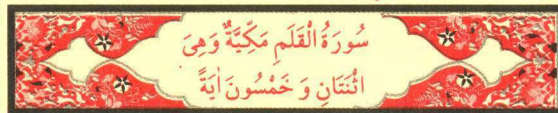 سُورَةُ الْقَلَمِ مَكِّيَّةٌ وَهِىَ
اثْنَتَانِ وَ خَمْسُونَ اٰيَةً